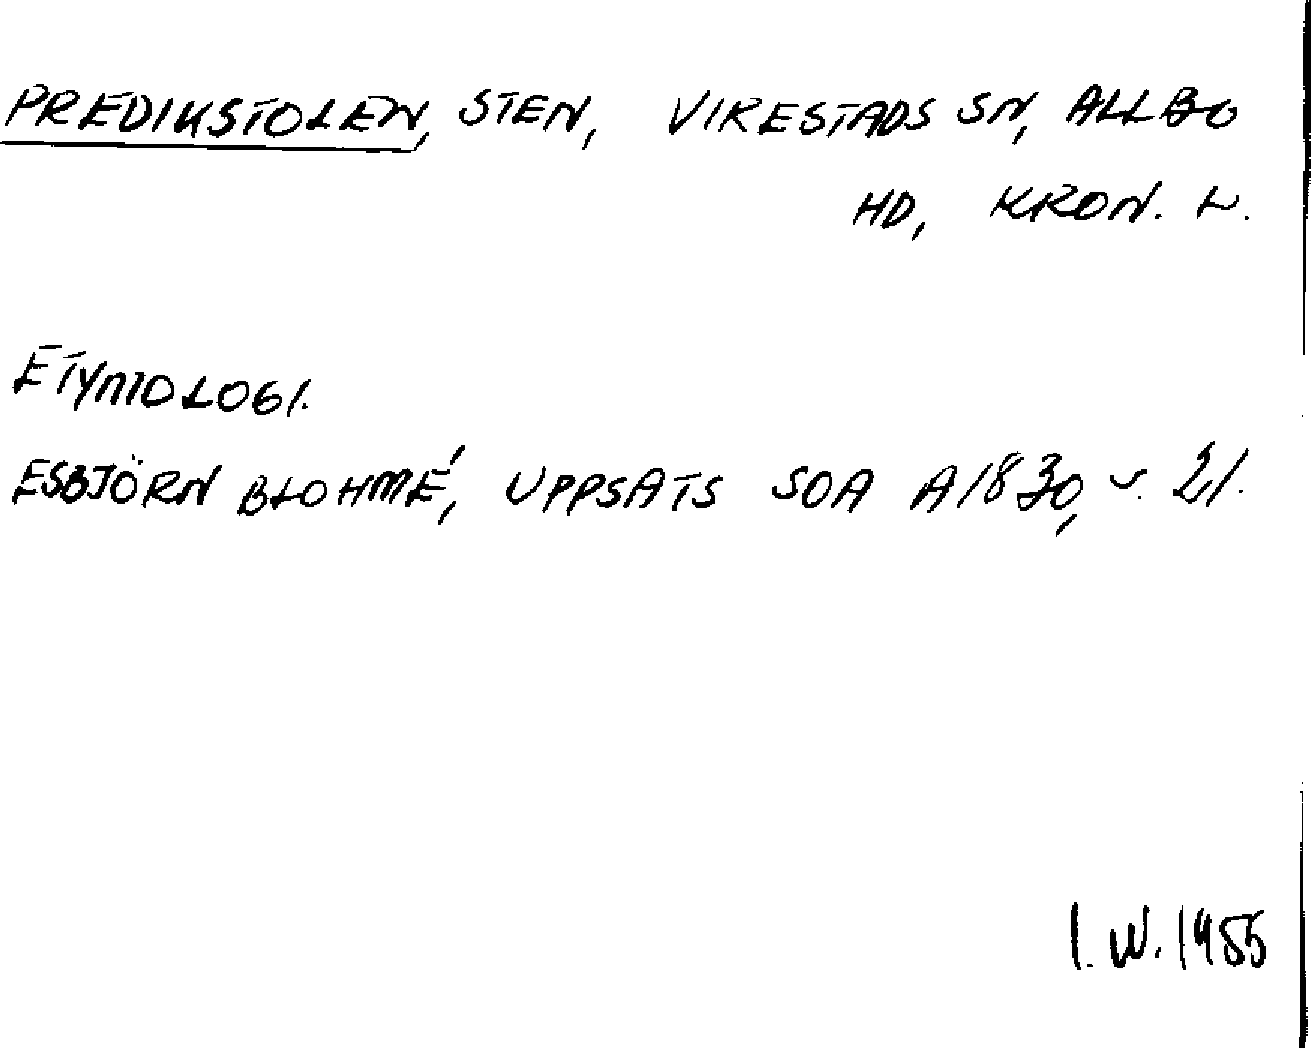 PREDIKSTOLEN, STEN, VIRESTADS SN, ALLBO
HD, KRON. L.
ETYMOLOGI.
ESBJÖRN BLOHMÉ, UPPSATS SOA A1830, s. 21.
I. W. 1955